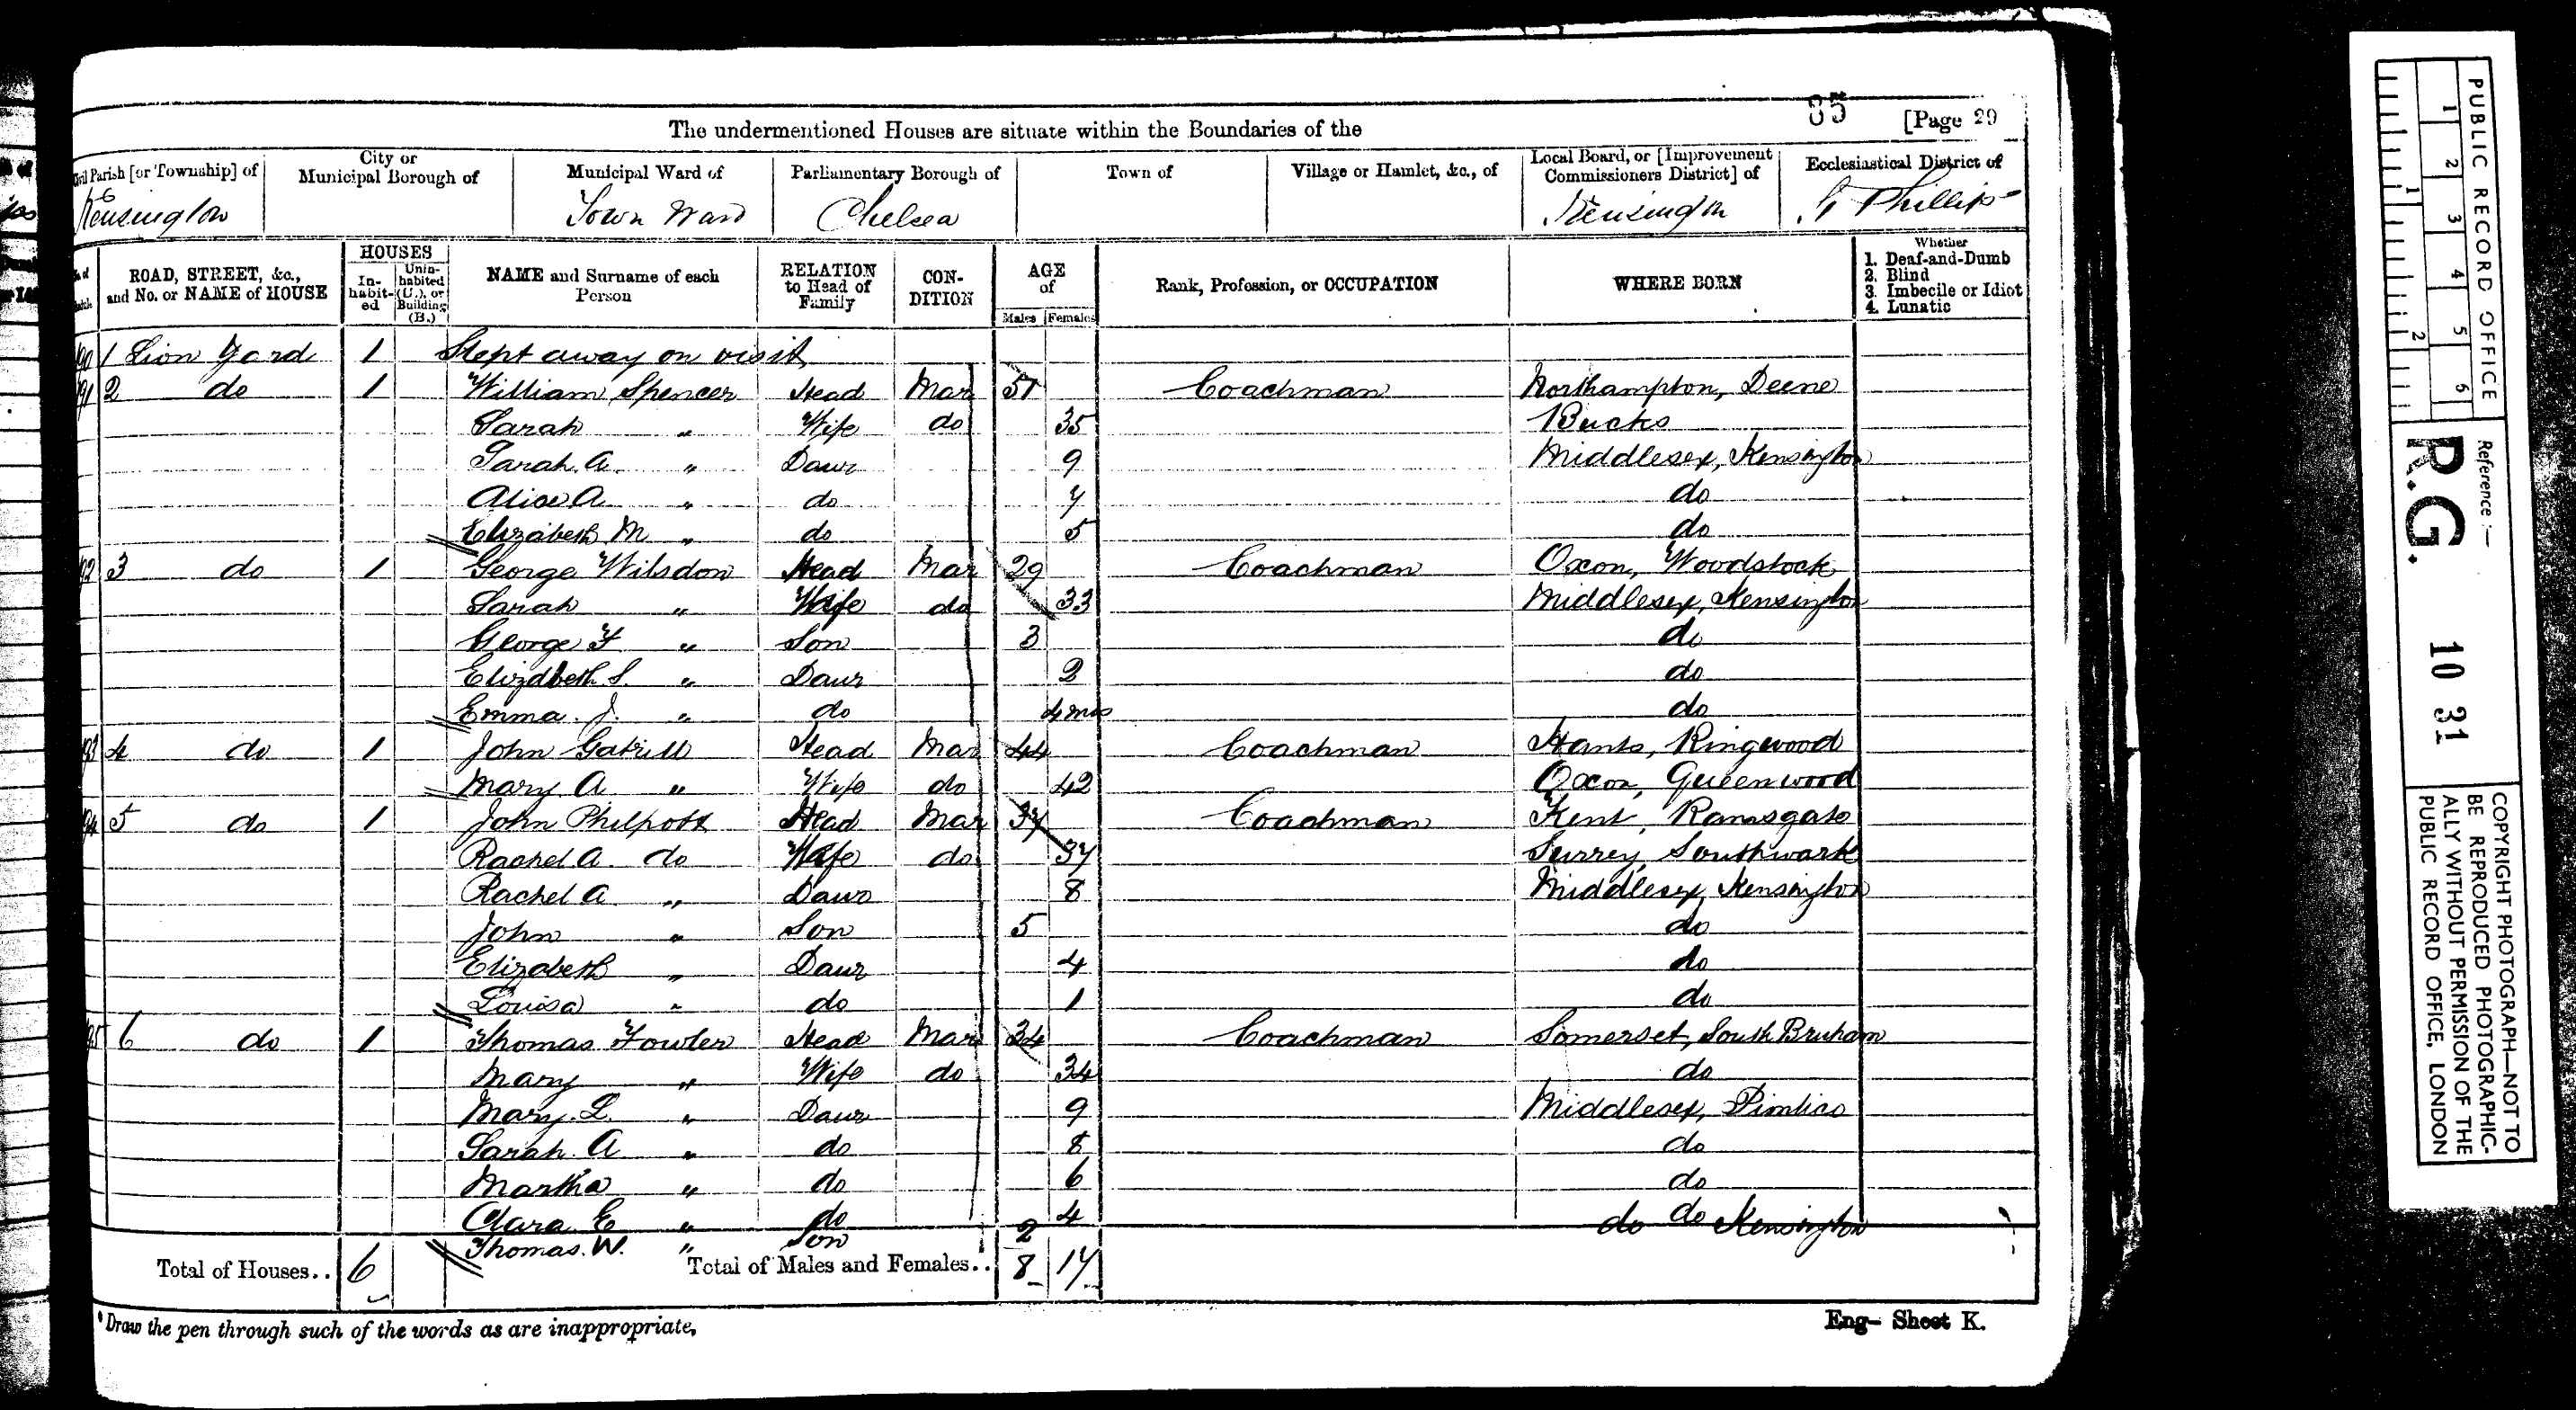 35 [Page 29
The undermentioned Houses are situate within the Boundaries of the
Civil Parish [or Township] of City or Municipal Borough of Municipal Ward of Parliamentary Borough of Town of Village or Hamlet, &c., of Local Board, or [Improvement Commissioners District] of Ecclesiastical District of
Kensington Town Ward Chelsea Kensington St Phillips
ROAD, STREET, &c., and No. or NAME of HOUSE HOUSES Inhabited Uninhabited (U.), or Building (B.) NAME and Surname of each Person RELATION to Head of Family CONDITION AGE of Males Females Rank, Profession, or OCCUPATION WHERE BORN Whether 1. Deaf-and-Dumb 2. Blind 3. Imbecile or Idiot 4. Lunatic
190 1 Lion Yard 1 Slept away on visit
191 2 do 1 William Spencer Head Mar 51 Coachman Northampton, Deene
Sarah " Wife do 35 Bucks
Sarah A. " Daur 9 Middlesex, Kensington
Alice A " do 7 do
Elizabeth M " do 5 do
192 3 do 1 George Wilsdon Head Mar 29 Coachman Oxon, Woodstock
Sarah " Wife do 33 Middlesex, Kensington
George F " Son 3 do
Elizabeth S. " Daur 2 do
Emma J. " do 4 mos do
193 4 do 1 John Gatrill Head Mar 44 Coachman Hants, Ringwood
Mary A " Wife do 42 Oxon, Queenwood
194 5 do 1 John Philpott Head Mar 37 Coachman Kent, Ramsgate
Rachel A. do Wife do 37 Surrey, Southwark
Rachel A " Daur 8 Middlesex, Kensington
John " Son 5 do
Elizabeth " Daur 4 do
Louisa " do 1 do
195 6 do 1 Thomas Fowler Head Mar 34 Coachman Somerset, South Bruham
Mary " Wife do 34 do
Mary L. " Daur 9 Middlesex, Pimlico
Sarah A " do 8 do
Martha " do 6 do
Clara E " do 4 do
Thomas. W. " Son 2 do Kensington
Total of Houses.. 6 Total of Males and Females.. 8 17
* Draw the pen through such of the words as are inappropriate.
Eng– Sheet K.
PUBLIC RECORD OFFICE
1 2 3 4 5 6
1 2
Reference :—
R.G. 10 31
COPYRIGHT PHOTOGRAPH—NOT TO
BE REPRODUCED PHOTOGRAPHIC-
ALLY WITHOUT PERMISSION OF THE
PUBLIC RECORD OFFICE, LONDON